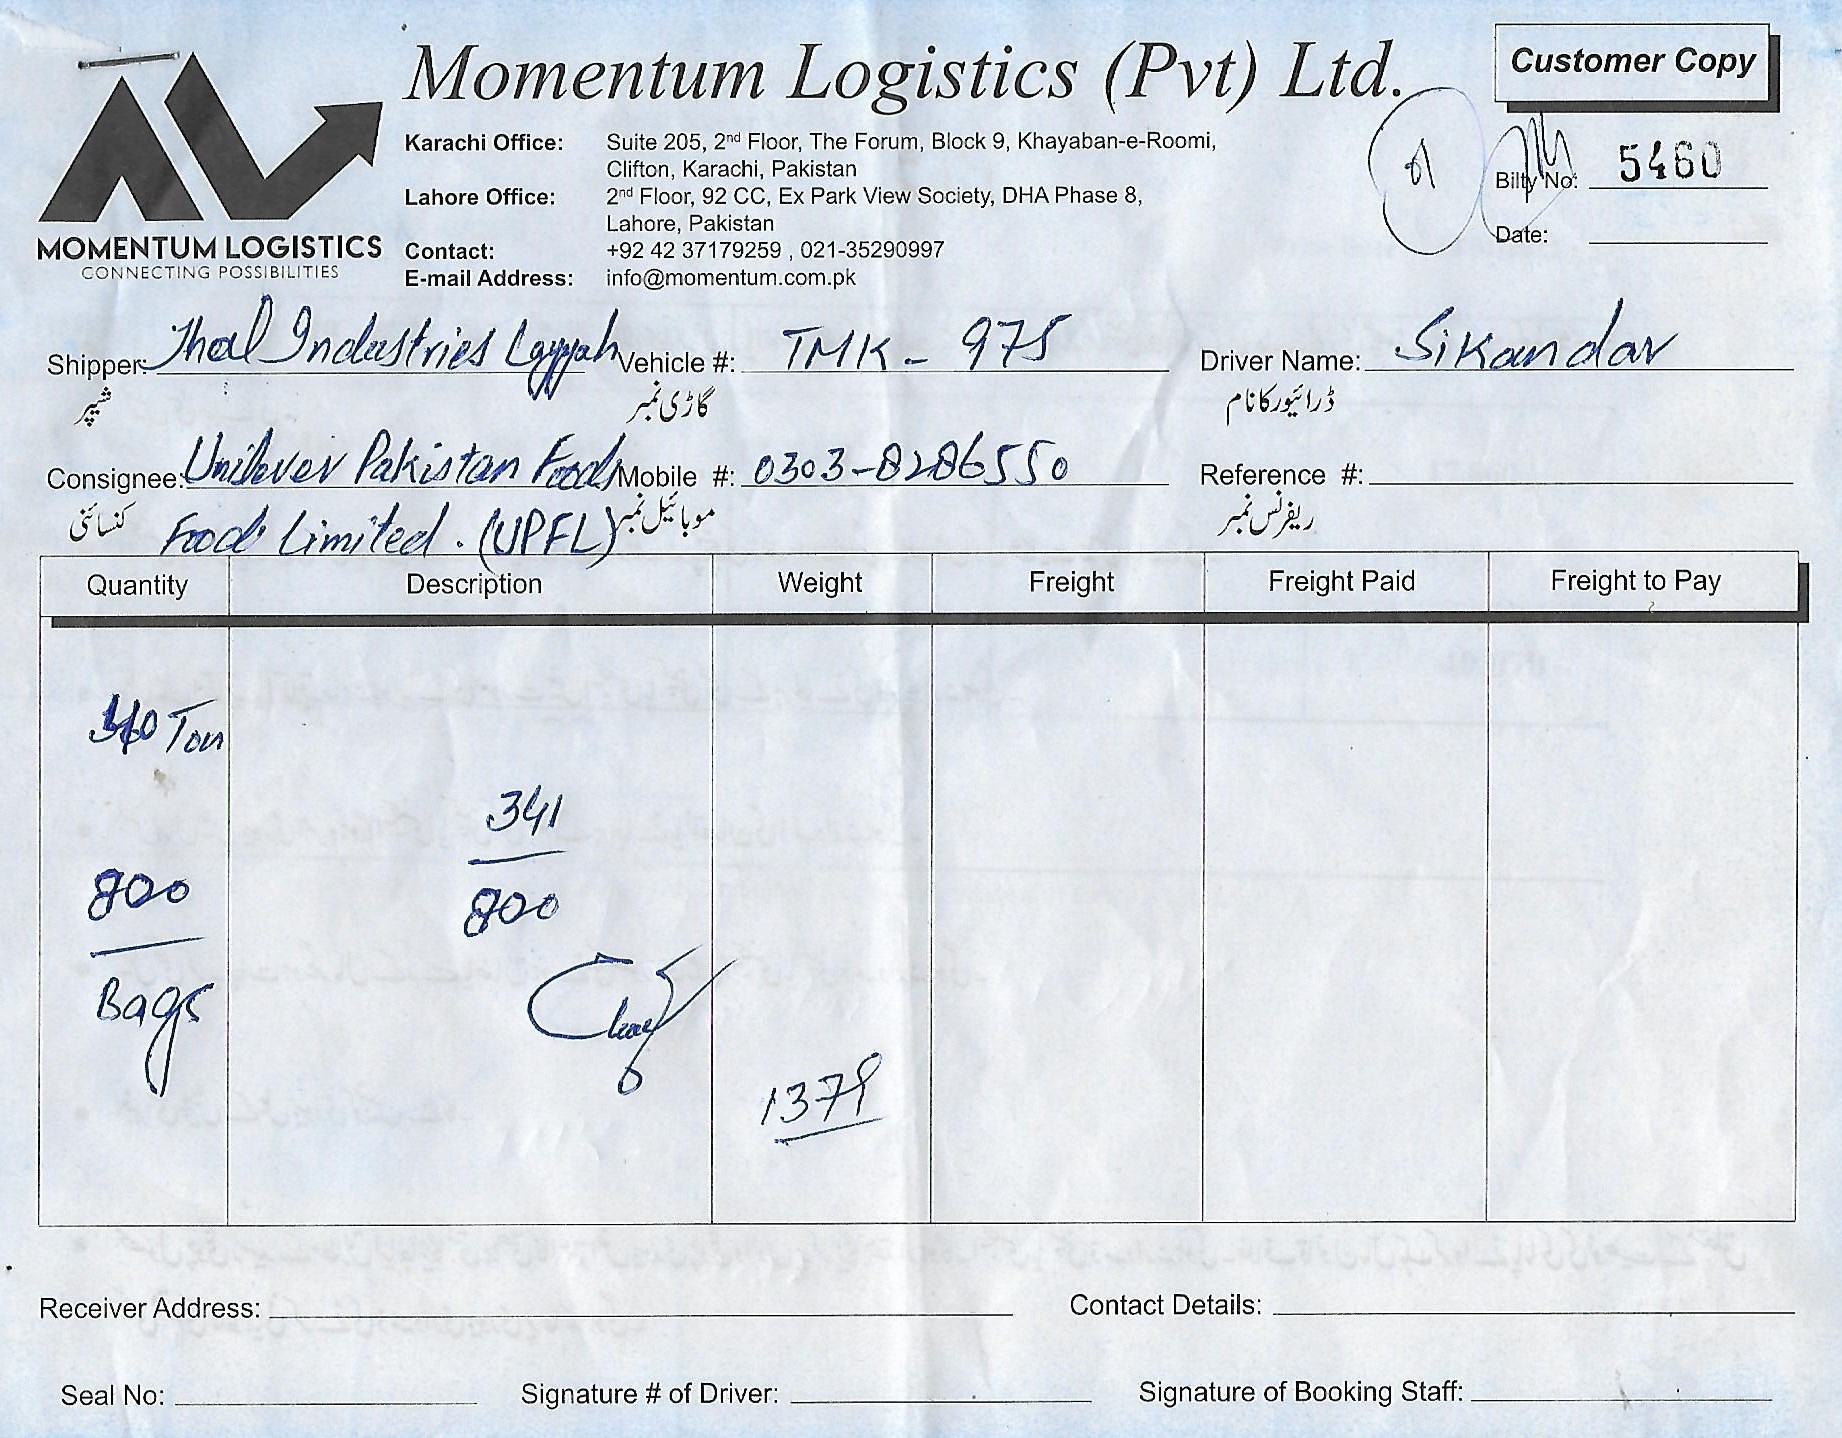 Momentum Logistics (Pvt) Ltd.
Customer Copy
MOMENTUM LOGISTICS
CONNECTING POSSIBILITIES
Karachi Office: Suite 205, 2nd Floor, The Forum, Block 9, Khayaban-e-Roomi,
Clifton, Karachi, Pakistan
Lahore Office: 2nd Floor, 92 CC, Ex Park View Society, DHA Phase 8,
Lahore, Pakistan
Contact: +92 42 37179259 , 021-35290997
E-mail Address: info@momentum.com.pk
Bilty No: 5460
Date:
Shipper: Thal Industries Layyah Vehicle #: TMK - 975 Driver Name: Sikandar
شپر گاڑی نمبر ڈرائیور کا نام
Consignee: Unilever Pakistan Foods Mobile #: 0303-8286550 Reference #:
کنسائنی موبائیل نمبر ریفرنس نمبر
Food Limited. (UPFL)
Quantity Description Weight Freight Freight Paid Freight to Pay
40 Ton
341
800
800
Bags
1379
Receiver Address: Contact Details:
Seal No: Signature # of Driver: Signature of Booking Staff: